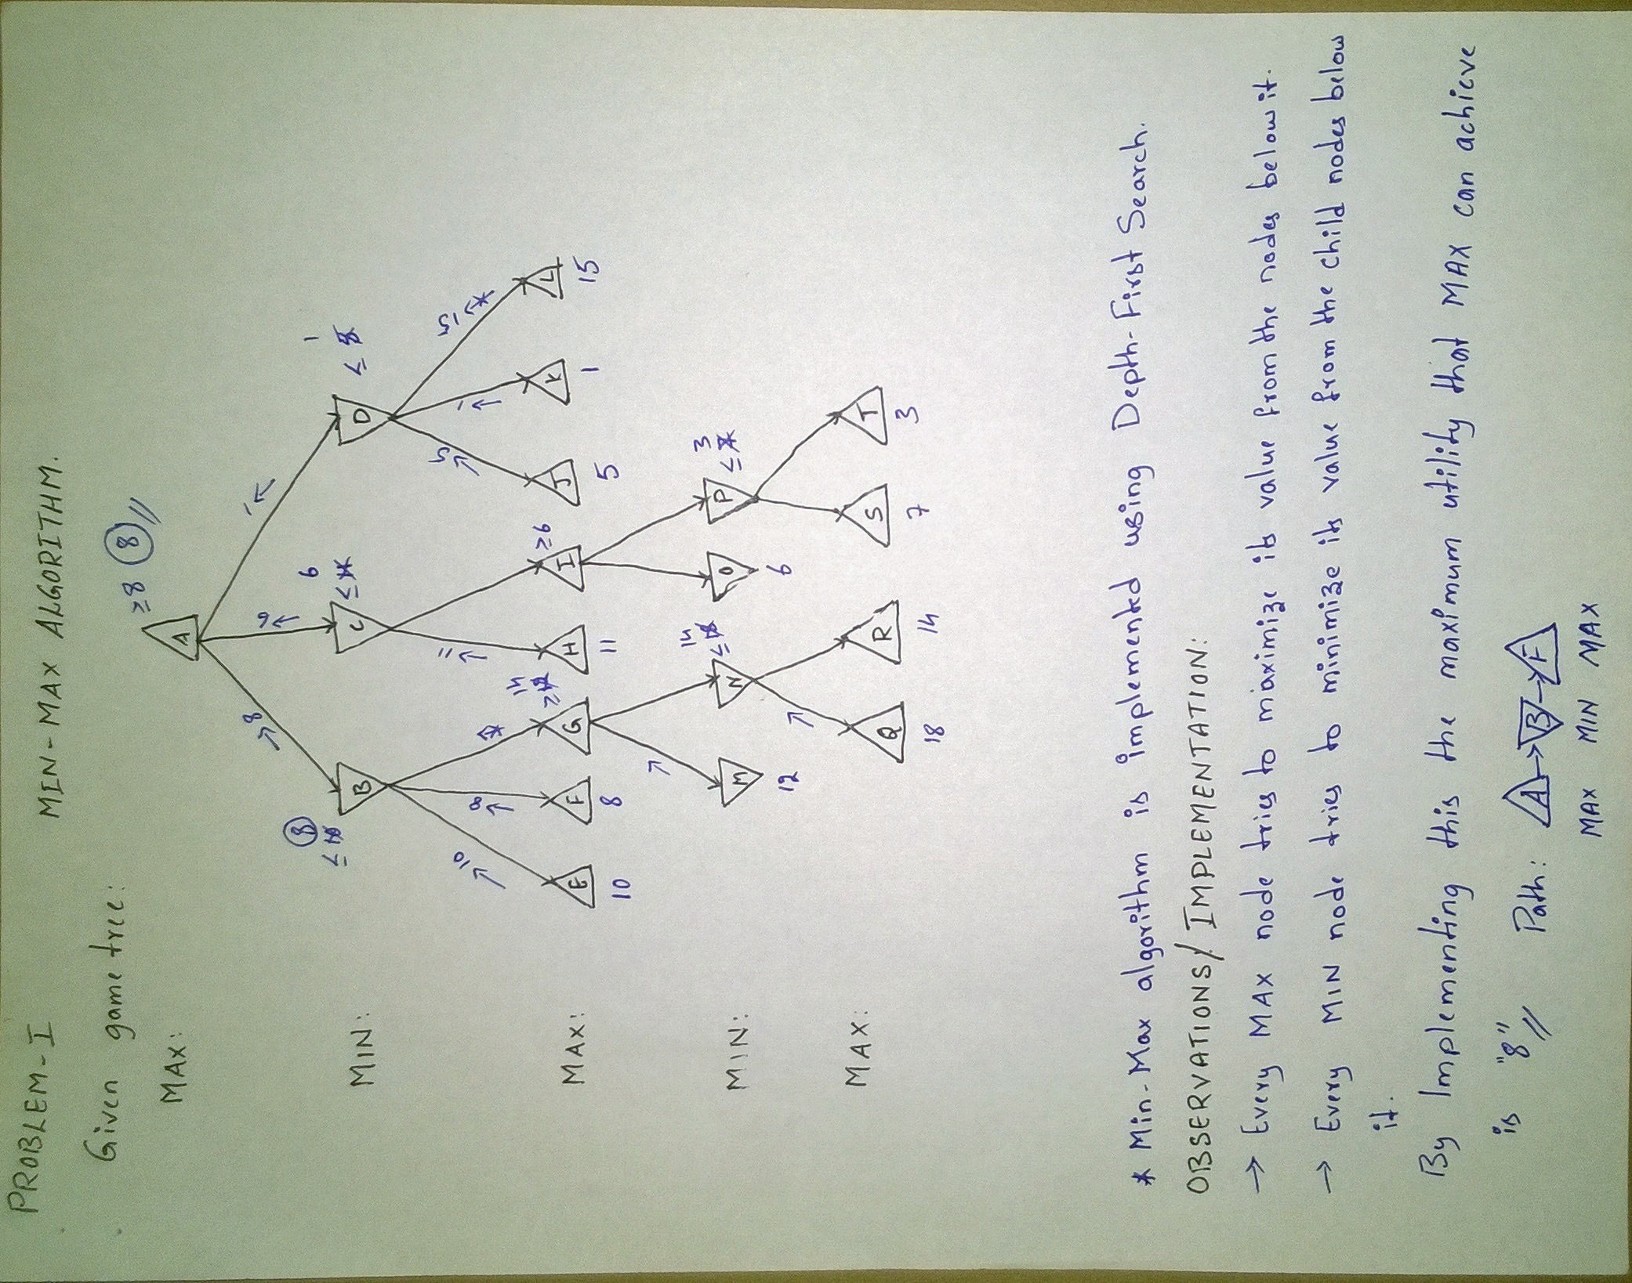 PROBLEM-I
MIN-MAX ALGORITHM.
Given game tree:
≥8 8
MAX:
A
→8 →6 1
8 6 1
≤10 ≤11 ≤5
MIN:
B C D
→10 →8 →11 →5 →1 15
14
≥12 ≥6
MAX:
E F G H I J K L
10 8 11 5 1 15
14 3
≤18 ≤7
MIN:
M N O P
12 6
MAX:
Q R S T
18 14 7 3
* Min-Max algorithm is implemented using Depth-First Search.
OBSERVATIONS/ IMPLEMENTATION:
→ Every MAX node tries to maximize its value from the nodes below it.
→ Every MIN node tries to minimize its value from the child nodes below
it.
By Implementing this the maximum utility that MAX can achieve
is "8"//
Path: A → B → F
MAX MIN MAX